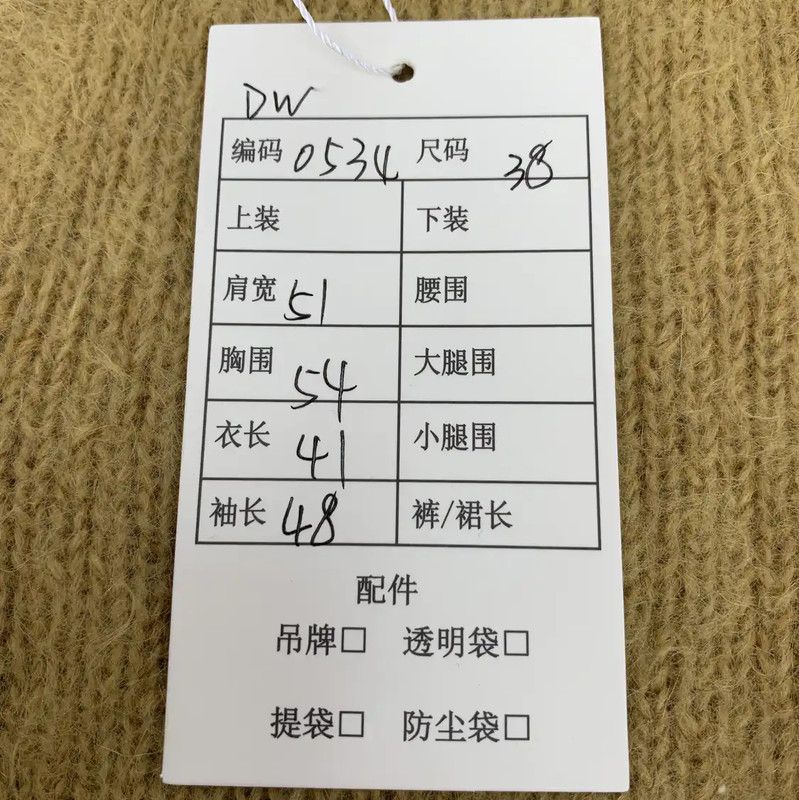 DW
编码 0534 尺码 38
上装 下装
肩宽 51 腰围
胸围 54 大腿围
衣长 41 小腿围
袖长 48 裤/裙长
配件
吊牌□ 透明袋□
提袋□ 防尘袋□